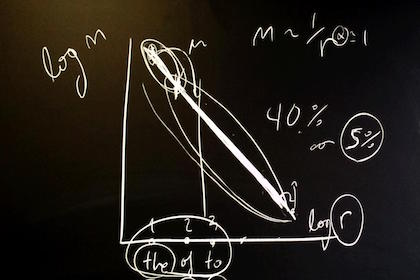 log n
n ~ 1/r α=1
40%
or 5%
log r
1 2 3
the of to